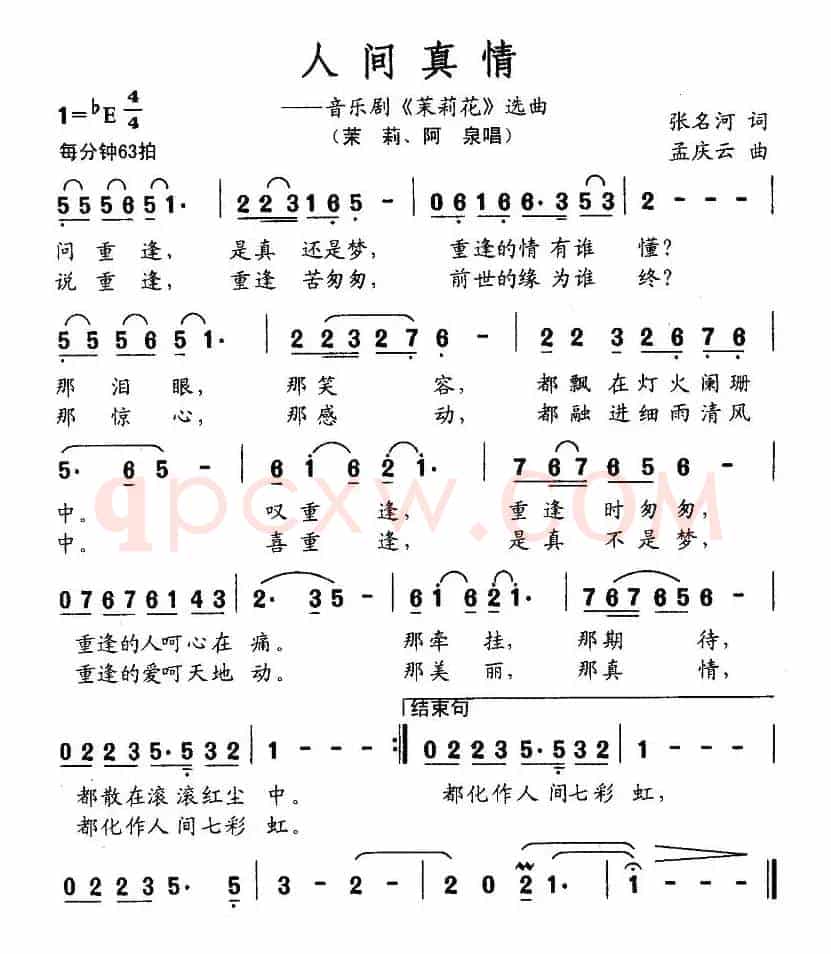 人间真情
——音乐剧《茉莉花》选曲
(茉 莉、阿 泉唱)
1=♭E 4/4
每分钟63拍
张名河 词
孟庆云 曲
5 5 5 6 5 1· | 2 2 3 1 6 5 - | 0 6 1 6 6· 3 5 3 | 2 - - - |
问 重 逢, 是真 还是梦, 重逢的情有谁 懂?
说 重 逢, 重逢 苦匆匆, 前世的缘为谁 终?
5 5 5 6 5 1· | 2 2 3 2 7 6 - | 2 2 3 2 6 7 6 |
那 泪 眼, 那笑 容, 都飘在灯火阑珊
那 惊 心, 那感 动, 都融进细雨清风
5· 6 5 - | 6 1 6 2 1· | 7 6 7 6 5 6 - |
中。 叹重 逢, 重逢 时匆匆,
中。 喜重 逢, 是真 不是梦,
qpcxw.com
0 7 6 7 6 1 4 3 | 2· 3 5 - | 6 1 6 2 1· | 7 6 7 6 5 6 - |
重逢的人呵心在 痛。 那牵 挂, 那期 待,
重逢的爱呵天地 动。 那美 丽, 那真 情,
结束句
0 2 2 3 5· 5 3 2 | 1 - - - :| 0 2 2 3 5· 5 3 2 | 1 - - - |
都散在滚 滚红尘 中。 都化作人 间七彩 虹,
都化作人 间七彩 虹。
0 2 2 3 5· 5 | 3 - 2 - | 2 0 2 1· | 1 - - - ‖